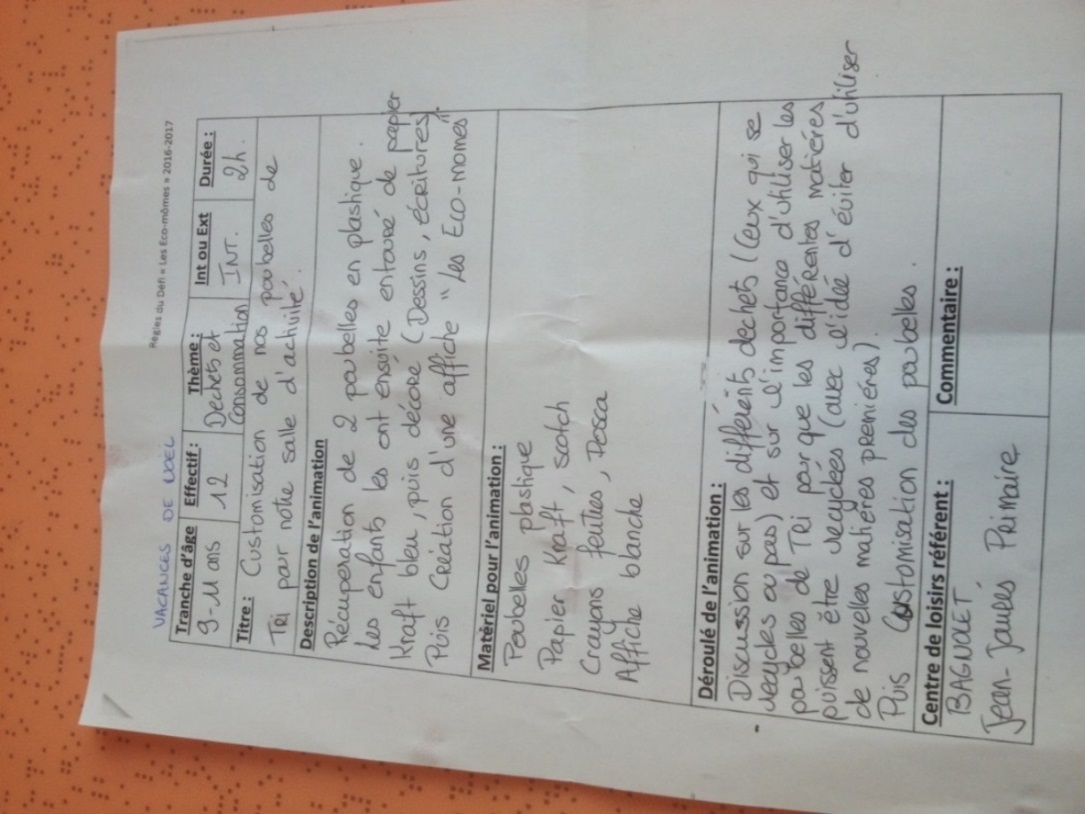 Règles du Défi « Les Eco-mômes » 2016-2017
VACANCES DE NOËL
Tranche d'âge Effectif : Thème : Int ou Ext Durée :
9-11 ans 12 Dechets et INT. 2h.
Consommation
Titre : Customisation de nos poubelles de
TRI par notre salle d'activité.
Description de l'animation
Récuperation de 2 poubelles en plastique.
Les enfants les ont ensuite entouré de papier
Kraft bleu, puis décoré (Dessins, écritures).
Puis Création d'une affiche "Les Eco-momes"
Matériel pour l'animation :
Poubelles plastique
Papier Kraft, scotch
Crayons feutres, Posca
Affiche blanche
Déroulé de l'animation :
Discussion sur les différents dechets (Ceux qui se
recycles ou pas) et sur l'importance d'utiliser les
poubelles de TRI pour que les différentes matières
puissent être recyclées (avec l'idée d'éviter d'utiliser
de nouvelles matières premières).
Puis Customisation des poubelles.
Centre de loisirs référent : Commentaire :
BAGNOLET
Jean-Jaurés Primaire